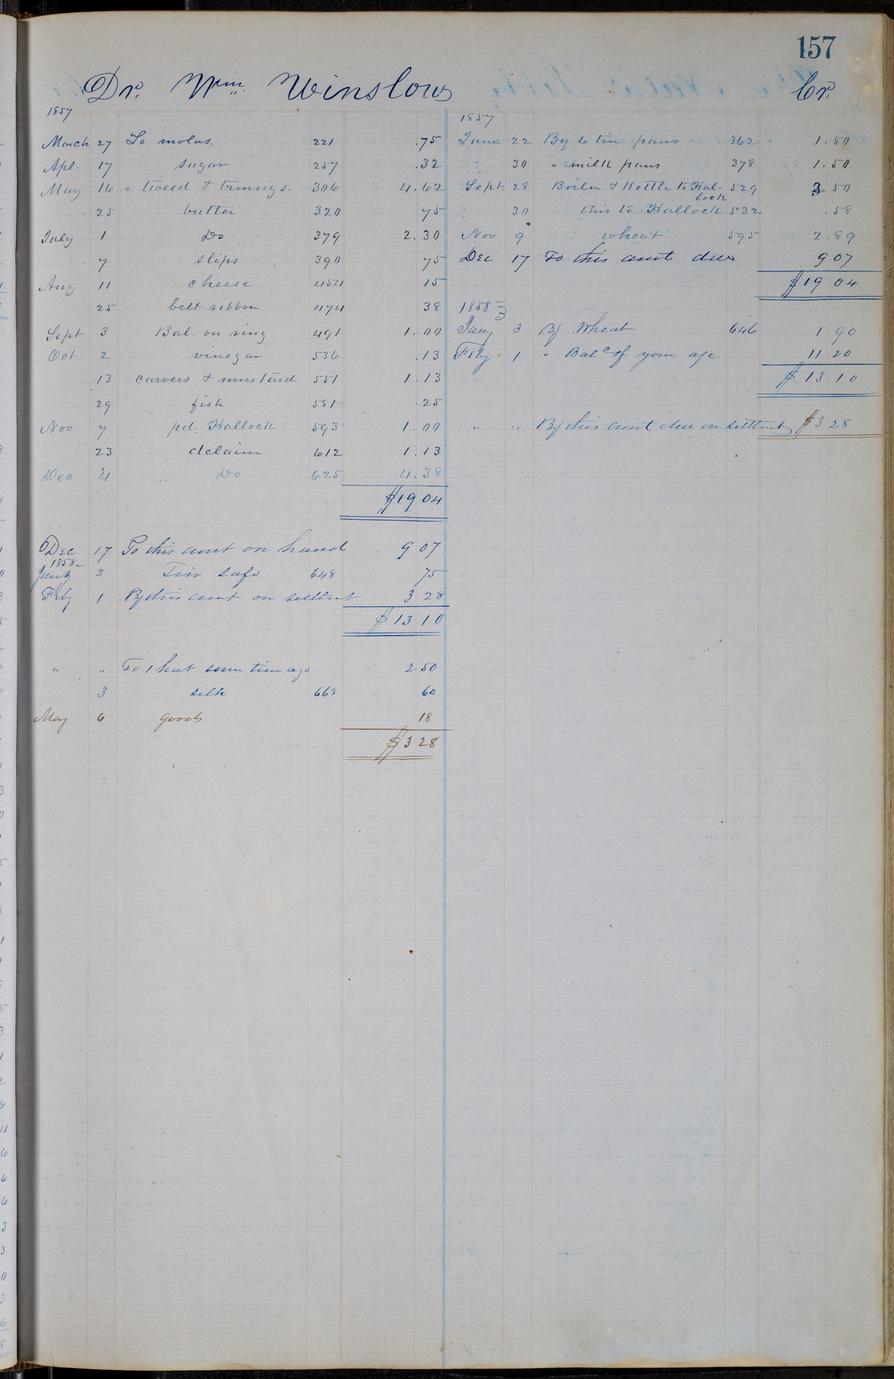 157
Dr. Wm. Winslow Cr.
1857
March 27 To molas. 221 .75
Apl. 17 sugar 257 .32
May 16 " tweed & trimings. 306 4.62
25 butter 320 75
July 1 Do 379 2.30
7 slips 390 75
Aug 11 cheese 454 15
25 belt ribbon 474 38
Sept 3 Bal. on ring 491 1.00
Oct 2 vinegar 536 .13
13 carvers & mustard 551 1.13
29 fish 581 .25
Nov 7 pd. Hallock 593 1.00
23 delaine 612 1.13
Dec 4 Do 625 4.38
$19 04
Dec 17 To this amt on hand 9 07
1858
Jany 3 Tin safe 648 75
Feby 1 By this amt on settlmt 3 28
$13 10
" " To 1 hat some time ago 2 50
3 silk 663 60
May 6 goods 18
$3 28
1857
June 22 By 6 tin pans 362 1.50
30 " milk pans 378 1.50
Sept. 28 Boiler & Kettle to Hal- 529 3 50
lock
30 this to Hallock 532 .58
Nov 9 wheat 595 2.89
Dec 17 To this amt due 9 07
$19 04
1858
Jany 3 By Wheat 646 1 90
Feby 1 " Balc of your a/c 11 20
$13 10
" " By this amt due on settlmt $3 28